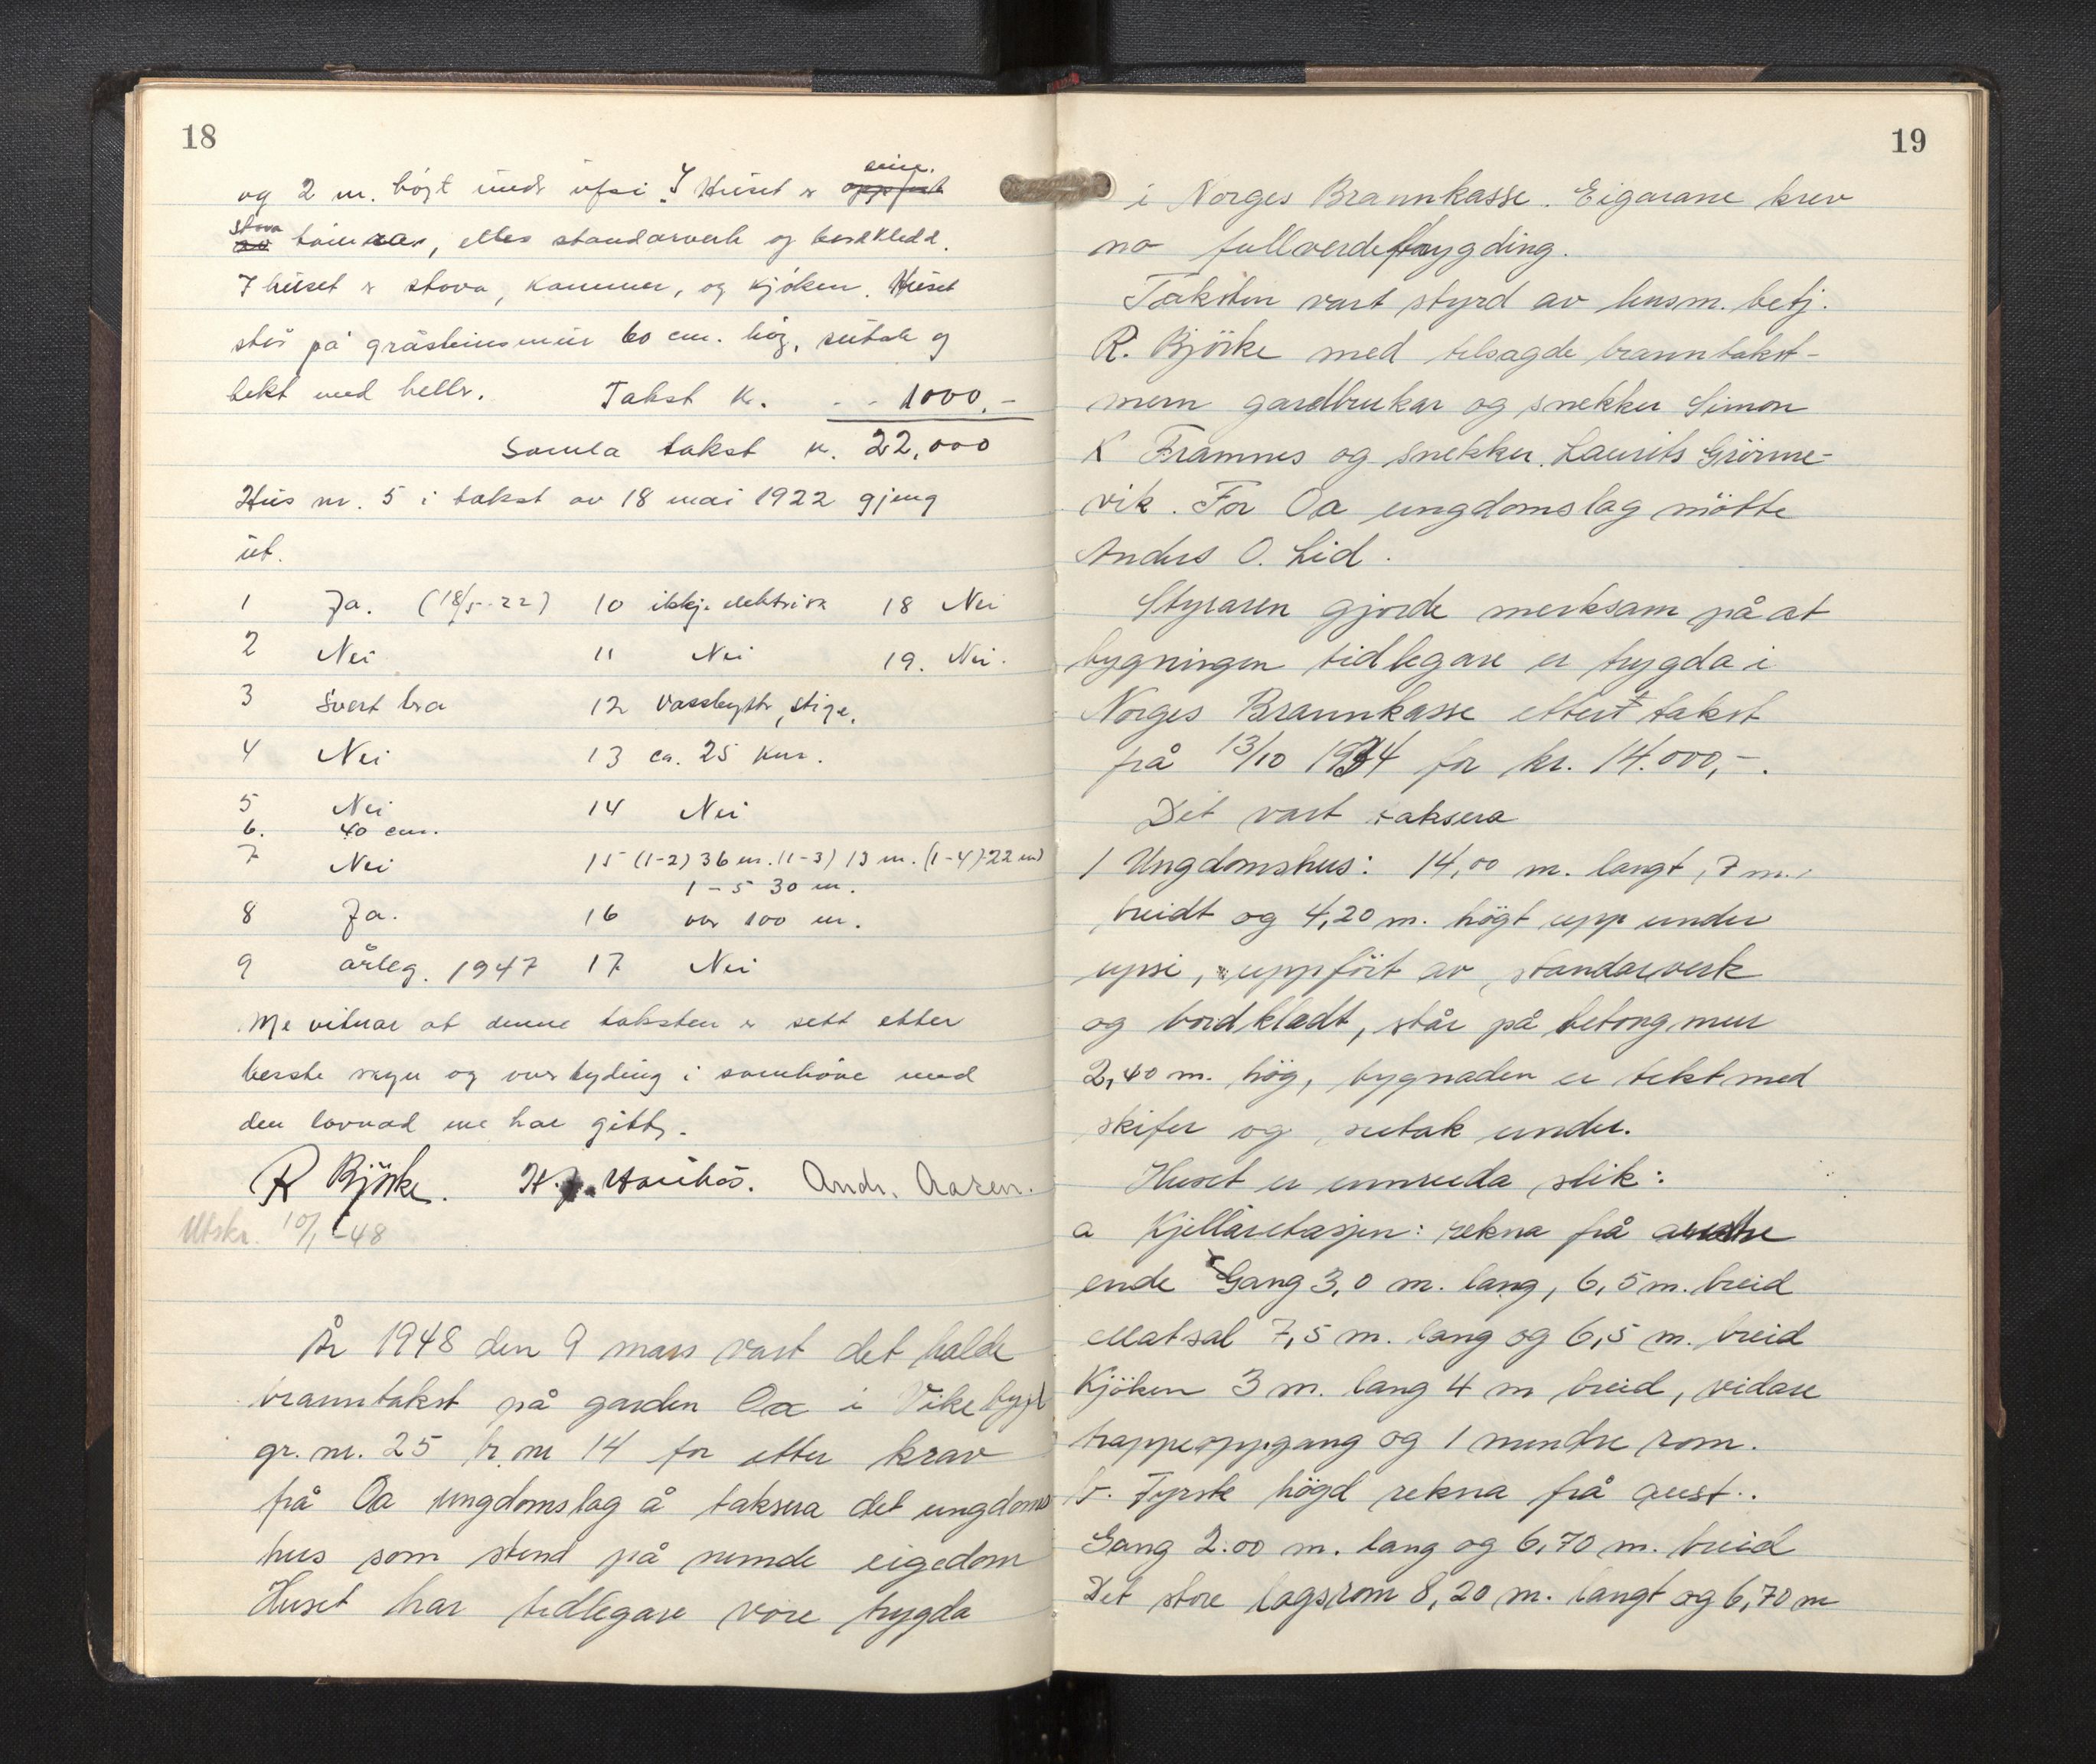 18
og 2 m. högt under ufsi. I Huset er
stova tømra, elles standarverk og bordkledd.
I huset er stova, kammer, og kjöken. Huset
står på gråsteinsmur 60 cm. høg, sutak og
tekt med heller. Takst kr. - - 1000.-
Samla takst kr. 22,000
Hus nr. 5 i takst av 18 mai 1922 gjeng
ut.
1 Ja. (18/5-22) 10 ikkje elektrisk 18 Nei
2 Nei 11 Nei 19. Nei.
3 Svert bra 12 Vassbytte, stige.
4 Nei 13 ca. 25 km.
5 Nei 14 Nei
6. 40 cm.
7 Nei 15 (1-2) 36 m. (1-3) 13 m. (1-4) 22 m)
1-5 30 m.
8 Ja. 16 over 100 m.
9 årleg. 1947 17 Nei
Me vitnar at denne taksten er sett etter
beste skyn og overtyding i samhøve med
den lovnad me har gitt.
R Björke. Andr. Aasen.
Utskr. 10/1-48
År 1948 den 9 mars vart det halde
branntakst på garden Oa i Vikebygd
gr. nr. 25 br. nr 14 for etter krav
frå Oa ungdomslag å taksera det ungdoms
hus som stend på nemde eigedom
Huset har tidlegare vore trygda
19
i Norges Brannkasse. Eigarane krev
no fullverdetrygding.
Taksten vart styrd av lensm. betj.
R. Björke med tilsagde branntakst-
menn gardbrukar og snekker Simon
K Framnes og snekker Laurits Grönne-
vik. For Oa ungdomslag mötte
Anders O. Lid.
Styraren gjorde merksam på at
bygningen tidlegare er trygda i
Norges Brannkasse etter takst
frå 13/10 1934 for kr. 14.000,-.
Det vart taksera
1 Ungdomshus: 14,00 m. langt, 7 m.
breidt og 4,20 m. högt upp under
upsi, uppfört av standarverk
og bordkledt, står på betongmur
2,40 m. hög, bygnaden er tekt med
skifer og sutak under.
Huset er innreda slik:
a Kjellaretasjen: rekna frå austre
ende Gang 3,0 m. lang, 6,5 m. breid
Matsal 7,5 m. lang og 6,5 m. breid
Kjöken 3 m. lang 4 m breid, vidare
trappeoppgang og 1 mindre rom.
b. Fyrste högd rekna frå aust..
Gang 2.00 m. lang og 6,70 m. breid
Det store lagsrom 8,20 m. langt og 6,70 m